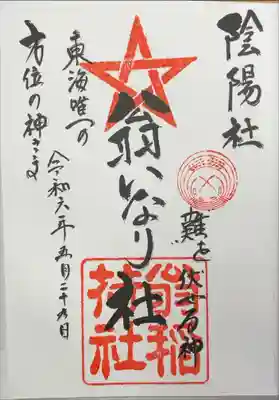 陰陽社
難を伏せる神
翁いなり社
東海唯一の
方位の神さま
令和六年五月二十九日
翁稲荷社